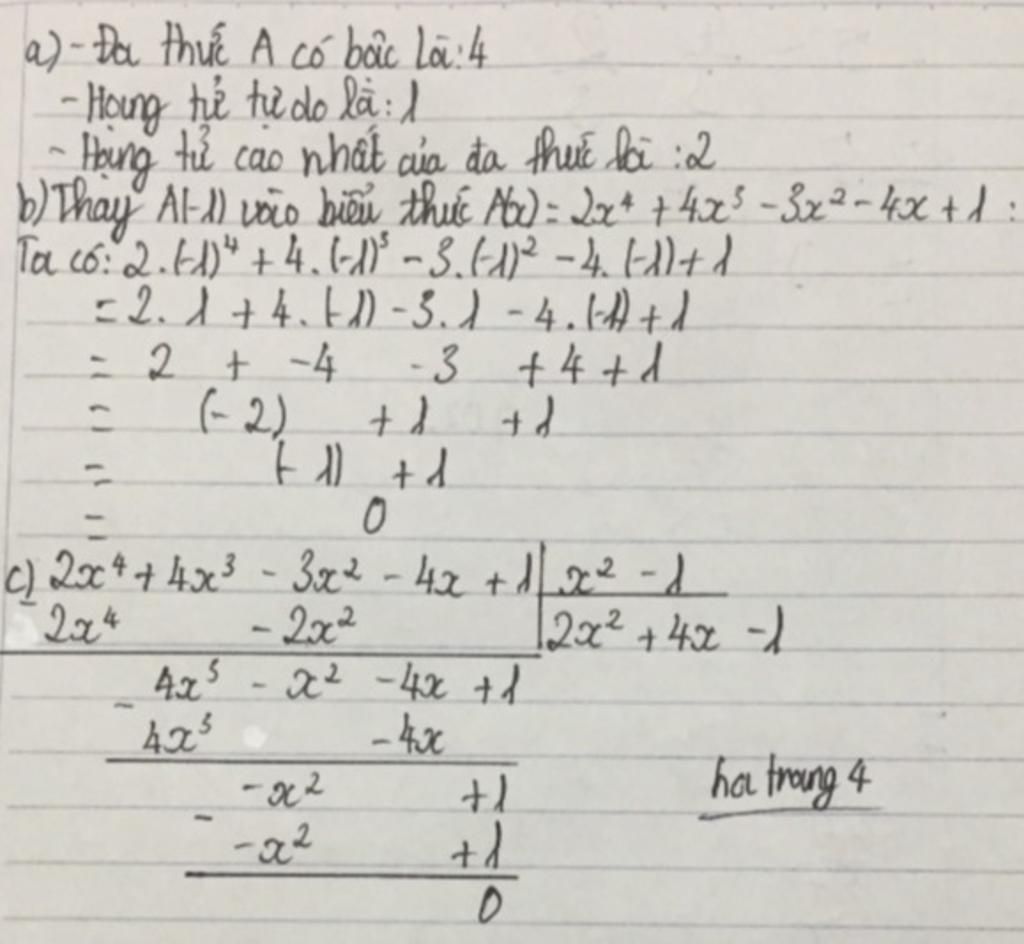 a) - Đa thức A có bậc là: 4
- Hạng tử tự do là: 1
- Hạng tử cao nhất của đa thức là: 2
b) Thay A(-1) vào biểu thức A(x) = 2x⁴ + 4x³ - 3x² - 4x + 1 :
Ta có: 2.(-1)⁴ + 4.(-1)³ - 3.(-1)² - 4.(-1) + 1
= 2.1 + 4.(-1) - 3.1 - 4.(-1) + 1
= 2 + -4 -3 + 4 + 1
= (-2) + 1 + 1
= (-1) + 1
= 0
c) 2x⁴ + 4x³ - 3x² - 4x + 1 | x² - 1
- 2x⁴ - 2x² | 2x² + 4x - 1
4x³ - x² - 4x + 1
- 4x³ - 4x
-x² + 1
- -x² + 1
0
hơi trang 4